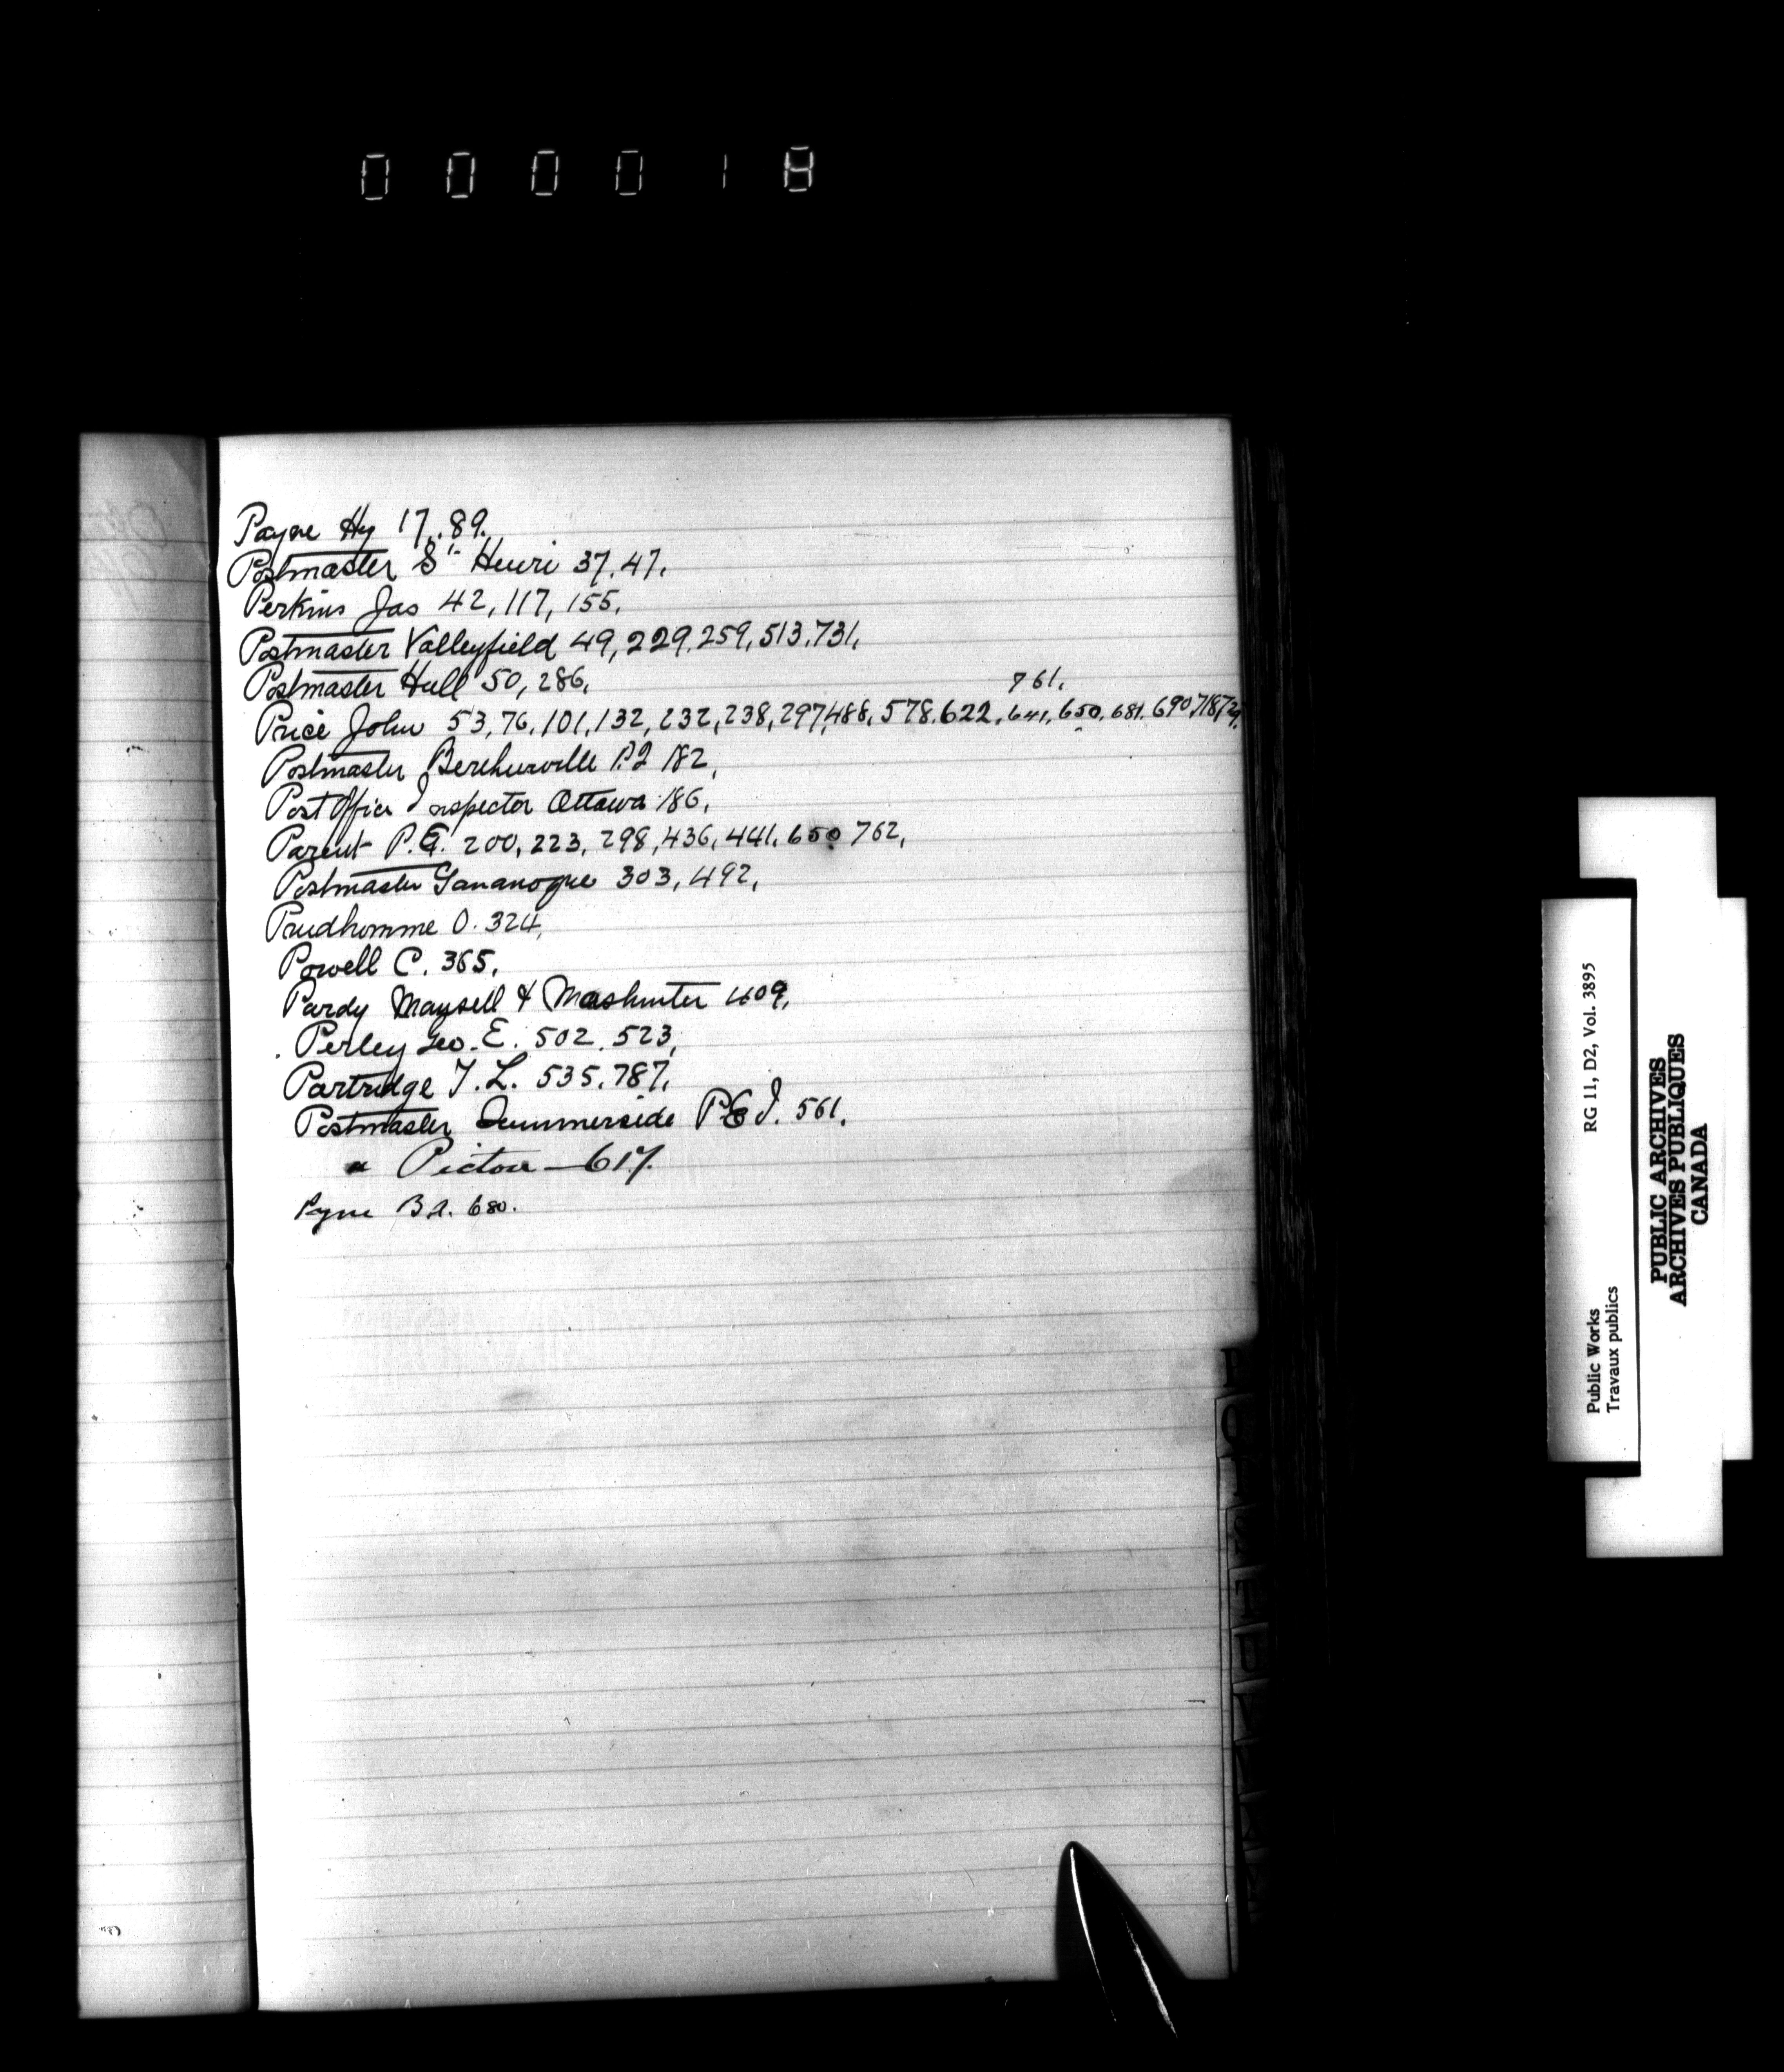 000018
Payne Hy 17, 89.
Postmaster St. Henri 37, 47,
Perkins Jas 42, 117, 155,
Postmaster Valleyfield 49, 229, 259, 513, 731,
Postmaster Hull 50, 286,
761,
Price John 53, 76, 101, 132, 232, 238, 297, 488, 578, 622, 641, 650, 681, 690, 718, 729,
Postmaster P.Q 182,
Post Office Inspector Ottawa 186,
Parent P.E. 200, 223, 298, 436, 441, 650 762,
Postmaster Gananoque 303, 492,
Prudhomme O. 324,
Powell C. 365,
Pardy Mansell & Mashinter 409,
Perley Geo. E. 502, 523,
Partridge T. L. 535, 787,
Postmaster Summerside P.E.I. 561,
" Pictou — 617.
Pyne B A. 680.
Public Works
Travaux publics
RG 11, D2, Vol. 3895
PUBLIC ARCHIVES
ARCHIVES PUBLIQUES
CANADA